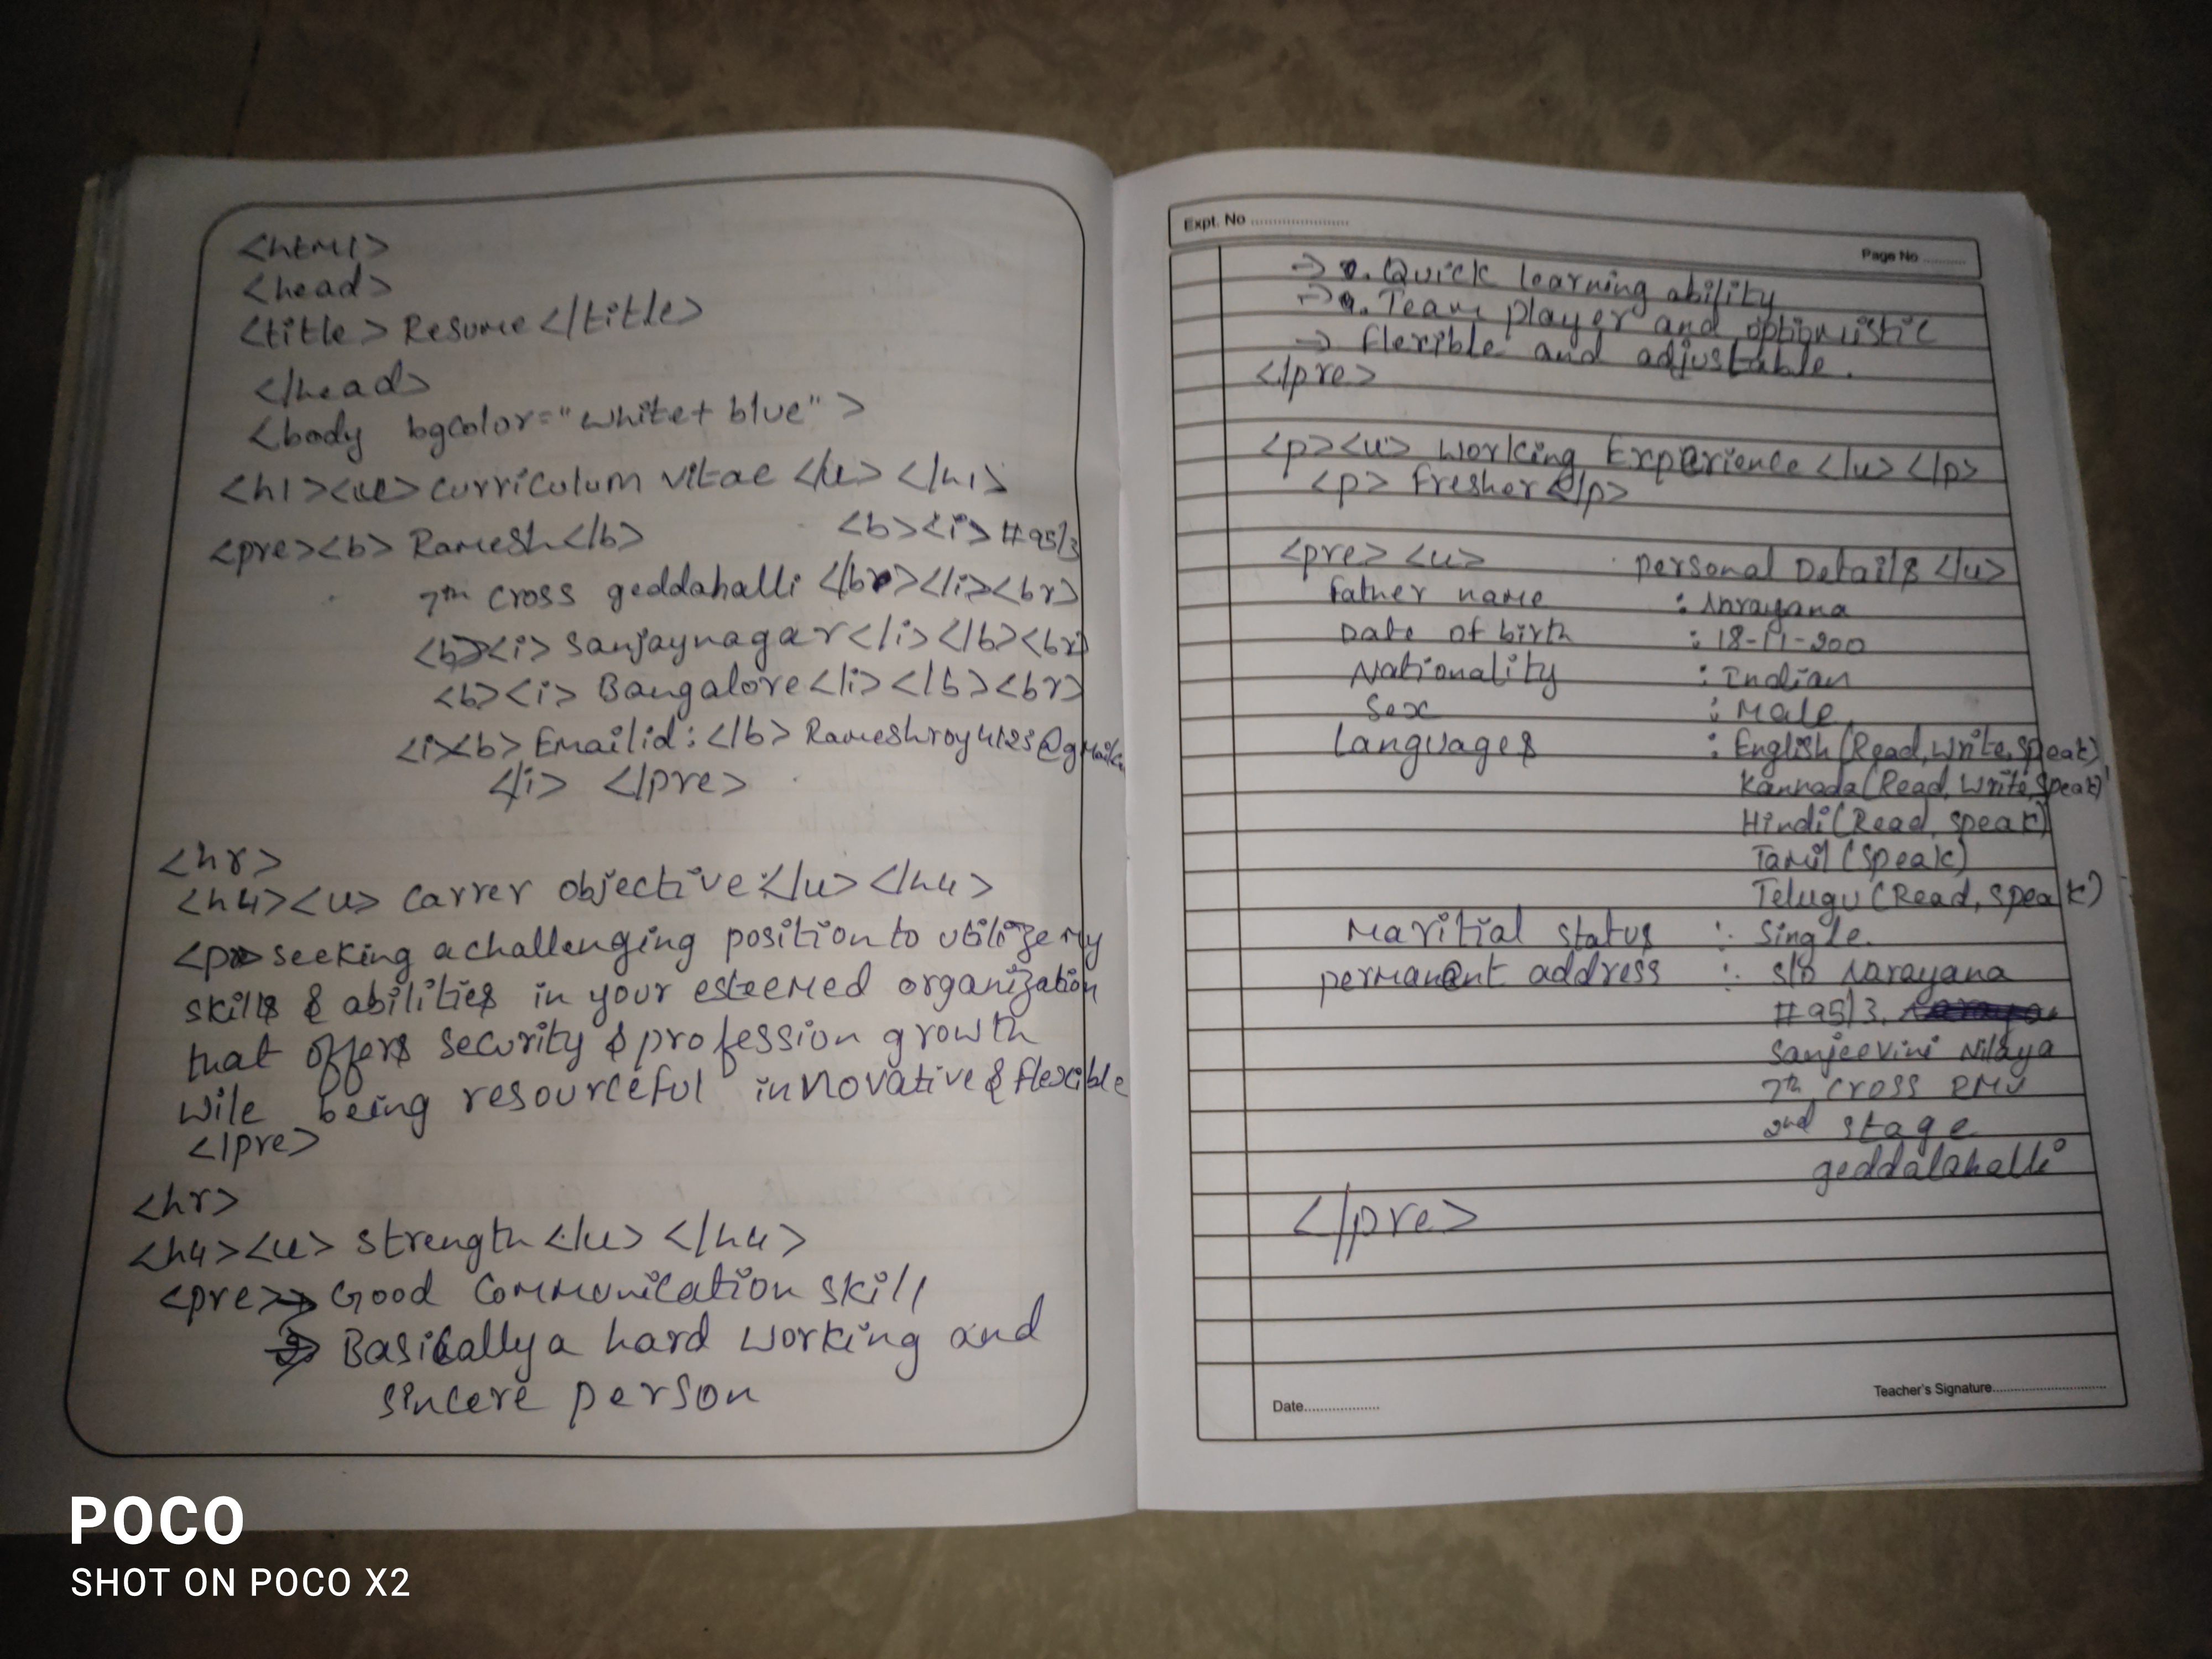 <html>
<head>
<title> Resume </title>
</head>
<body bgcolor="white+ blue" >
<h1><u> curriculum vitae </u> </h1>
<pre><b> Ramesh </b> <b><i> #95/3
7th cross geddahalli </br></i><br>
<b><i> Sanjaynagar </i></b><br>
<b><i> Bangalore </i></b><br>
<i><b> Emailid: </b>
</i> </pre>
<hr>
<h4><u> Carrer objective:</u> </h4>
seeking a challenging position to utilize my
skills & abilities in your esteemed organization
that offers security & profession growth
wile being resourceful innovative & flexible
</pre>
<hr>
<h4><u> strength </u> </h4>
<pre>→ Good Communication skill
→ Basically a hard working and
sincere person
POCO
SHOT ON POCO X2
Expt. No
Page No
→ Quick learning ability
→ Team player and optionistic
→ flexible and adjustable.
</pre>
<p><u> working Experience </u> </p>
<p> fresher </p>
<pre> <u> personal Details </u>
father name : Nrayana
Date of birth : 18-11-200
Nationality : Indian
Sex : Male
languages : English (Read, write, speak)
Kannada (Read, write, speak)
Hindi (Read, speak)
Tamil (Speak)
Telugu (Read, speak)
Maritial status : Single
permanent address : s/o Narayana
#95/3,
Sanjeevini Nilaya
7th cross RMV
2nd stage
geddalahalli
</pre>
Date
Teacher's Signature